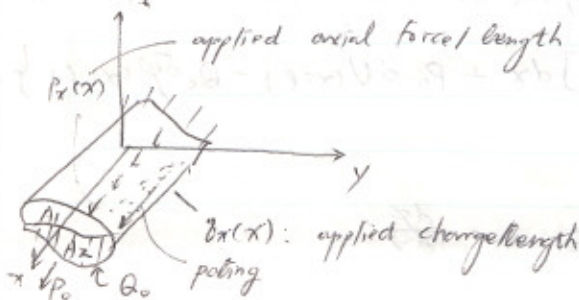 applied axial force/length
Px(x)
L
y
γx(x): applied charge/length
A1
A2
poling
x
P0
Q0